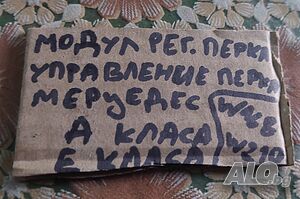 МОДУЛ РЕГ. ПЕРКА
УПРАВЛЕНИЕ ПЕРКА
МЕРЦЕДЕС
А КЛАСА
Е КЛАСА
W168
W210
ALO.bg